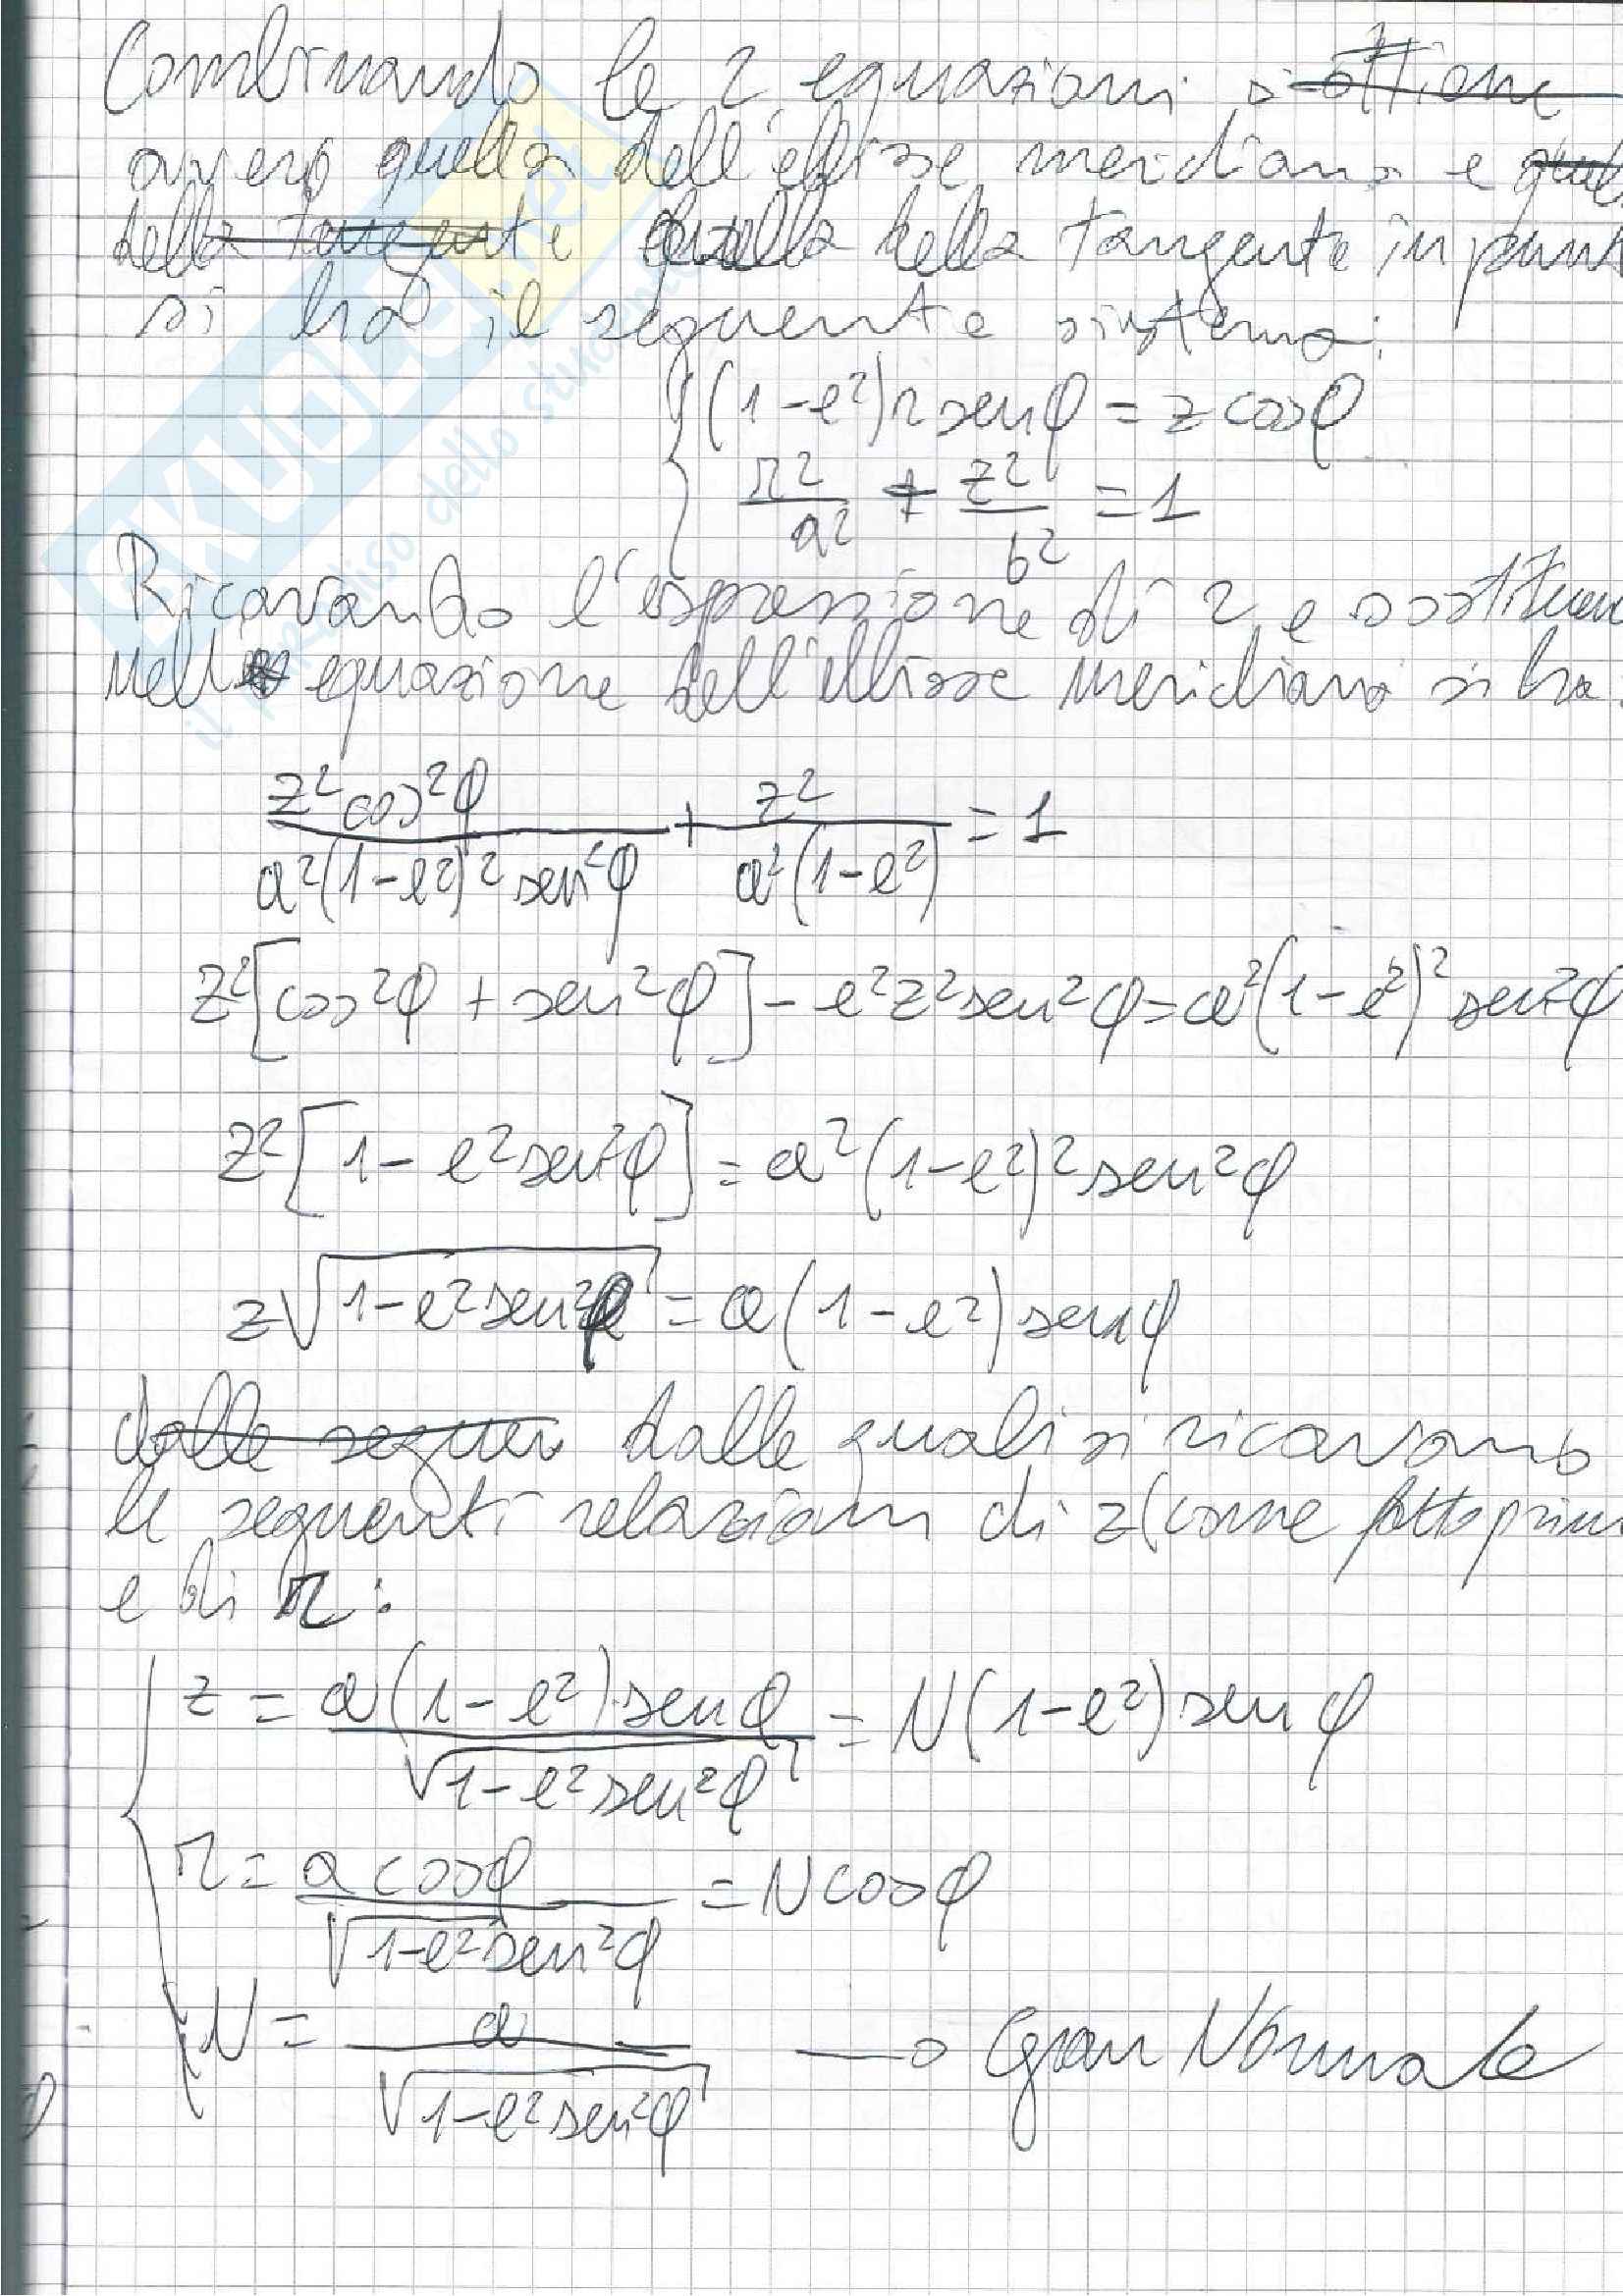 Combinando le 2 equazioni si ottiene
ovvero quella dell'ellisse meridiana e quel
della tangente quella della tangente in pun
si ha il seguente sistema:
(1-e²) r sen φ = z cos φ
r²/a² + z²/b² = 1
Ricavando l'espressione di r e sostituen
nell equazione dell'ellisse meridiana si ha:
z² cos² φ / a²(1-e²)² sen² φ + z² / a²(1-e²) = 1
z² [cos² φ + sen² φ] - e² z² sen² φ = a² (1-e²)² sen² φ
z² [1 - e² sen² φ] = a² (1-e²)² sen² φ
z √1-e² sen² φ = a (1-e²) sen φ
dalle seguen dalle quali si ricavano
le seguenti relazioni di z (come fatto prim
e di r:
z = a(1-e²) sen φ / √1-e² sen² φ = N (1-e²) sen φ
r = a cos φ / √1-e² sen² φ = N cos φ
N = a / √1-e² sen² φ → Gran Normale
SKUOLA.net
il paradiso dello stud